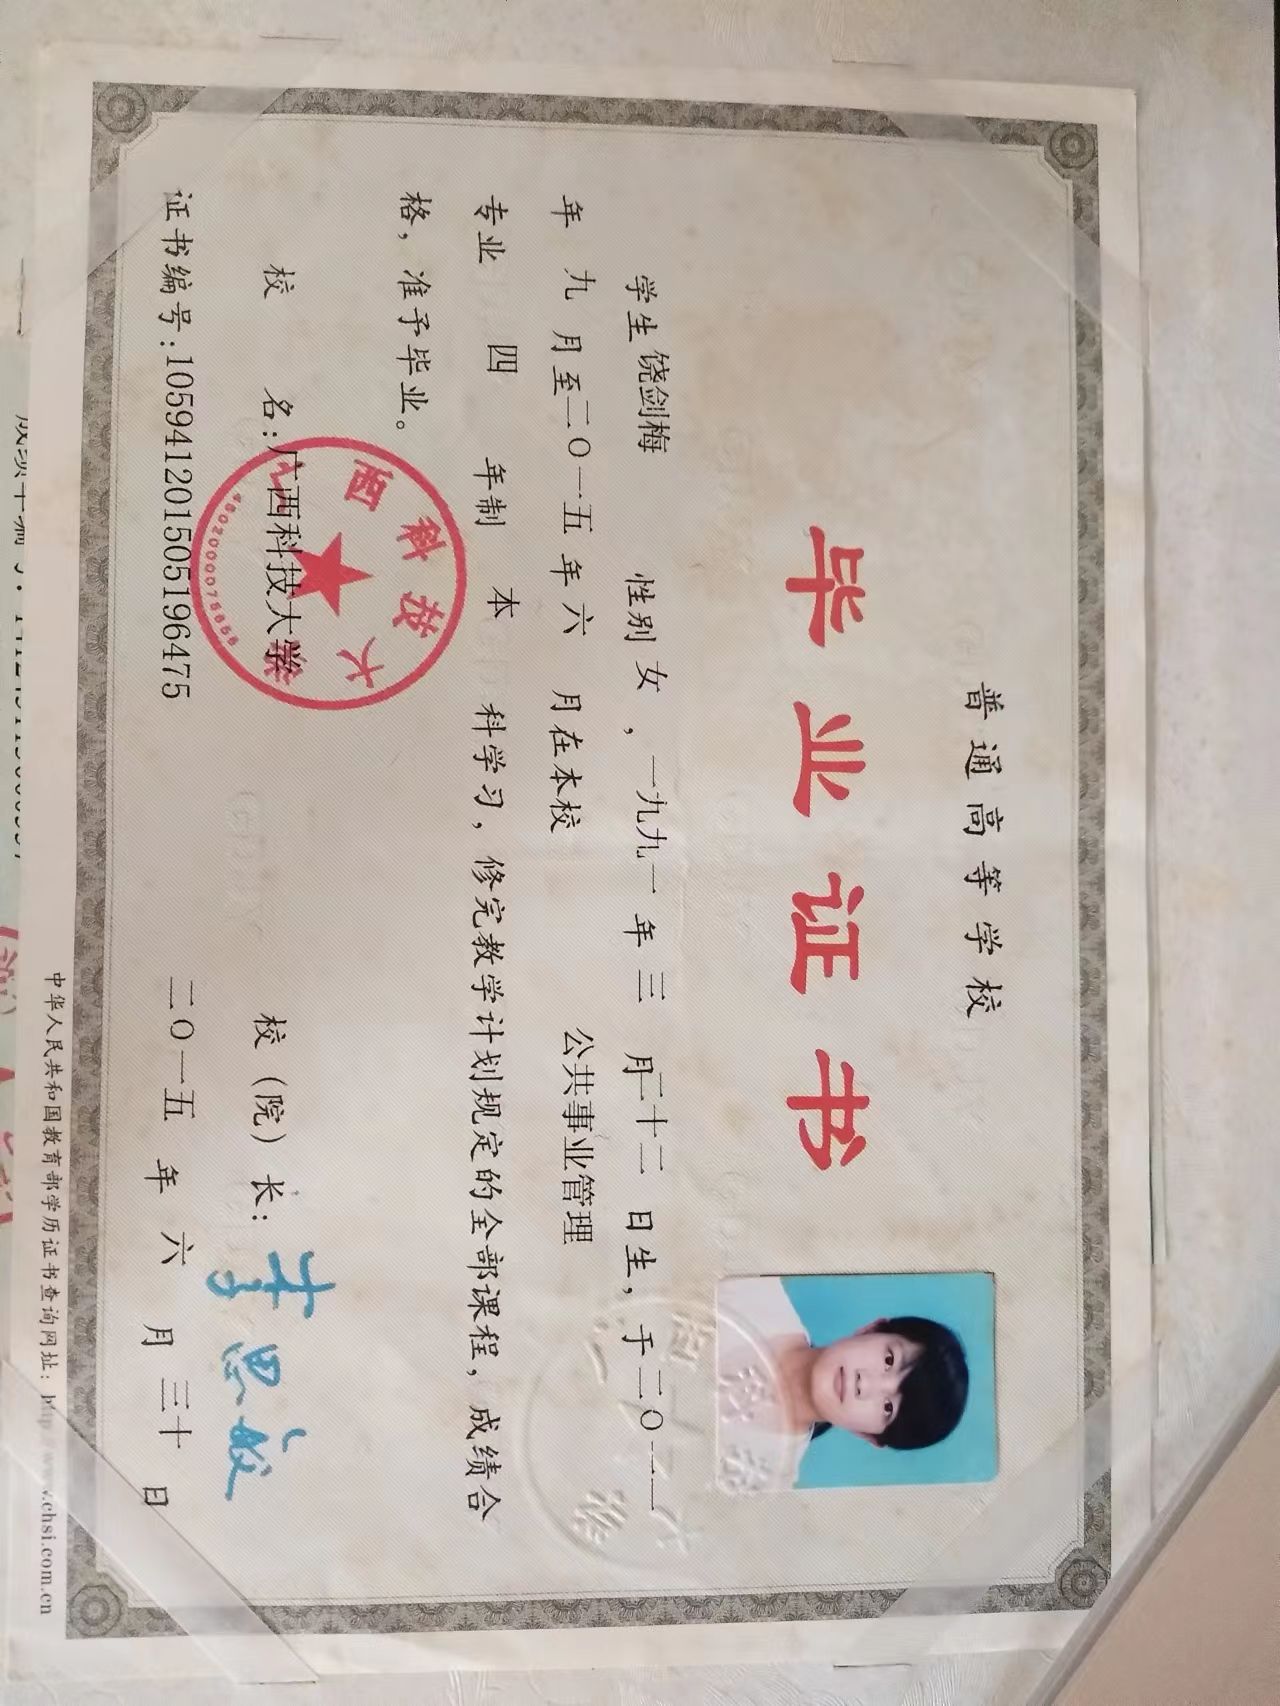 普通高等学校
毕业证书
学生 饶剑梅 性别 女 ，一九九一 年 三 月二十二 日生，于二〇一一
年 九 月至二〇一五 年 六 月在本校 公共事业管理
专业 四 年制 本 科学习，修完教学计划规定的全部课程，成绩合
格，准予毕业。
校 名：广西科技大学 校（院）长：李思敏
广西科技大学
证书编号：105941201505196475 二〇一五 年 六 月 三十 日
中华人民共和国教育部学历证书查询网址：http://www.chsi.com.cn